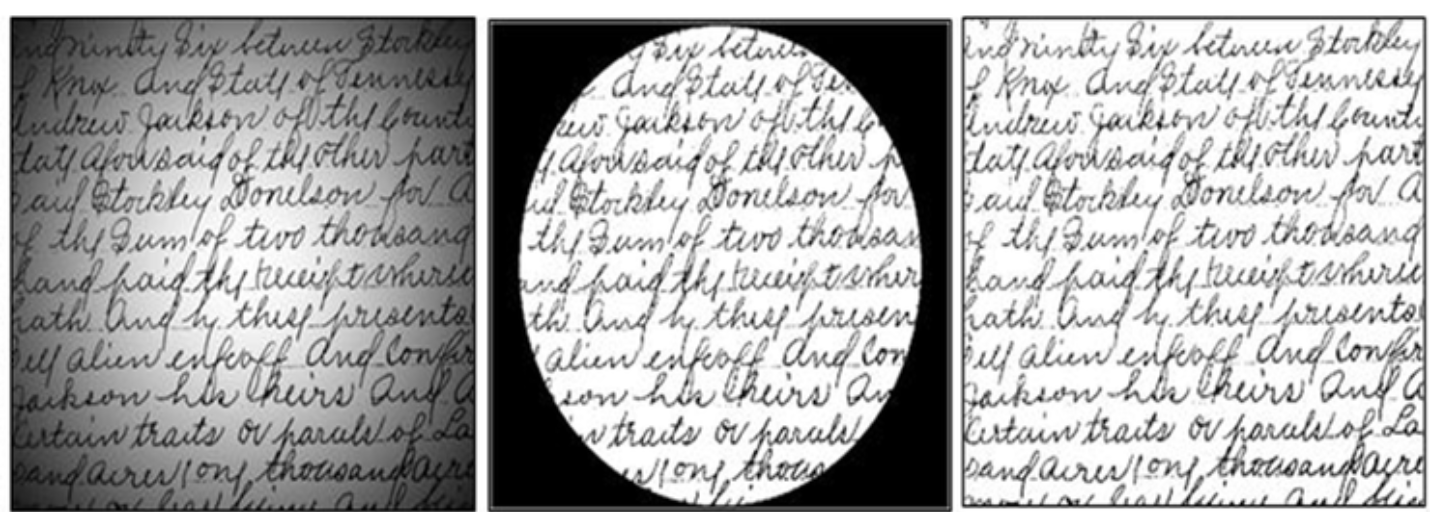 ind ninty Six between Stockley
of Knox And State of Tennessy
Andrew Jackson of the Count
tate aforesaid of the other part
said Stockley Donelson for A
of the Sum of two thousand
hand paid the receipt where
hath And by these presents
sell alien enfeoff And Confir
Jackson his heirs And A
certain traits or parcels of La
sand acres one thousand acre
Six between
And State of Te
rew Jackson of the Co
aforesaid of the other p
aid Stockley Donelson for
the Sum of two thousan
and paid the receipt wher
th And by these presen
alien enfeoff And Con
son his heirs An
traits or parcels
es one thousa
ind ninty Six between Stockley
of Knox And State of Tennessy
Andrew Jackson of the Count
tate aforesaid of the other part
said Stockley Donelson for A
of the Sum of two thousand
hand paid the receipt where
hath And by these presents
sell alien enfeoff And Confir
Jackson his heirs And A
certain traits or parcels of La
sand acres one thousand acre